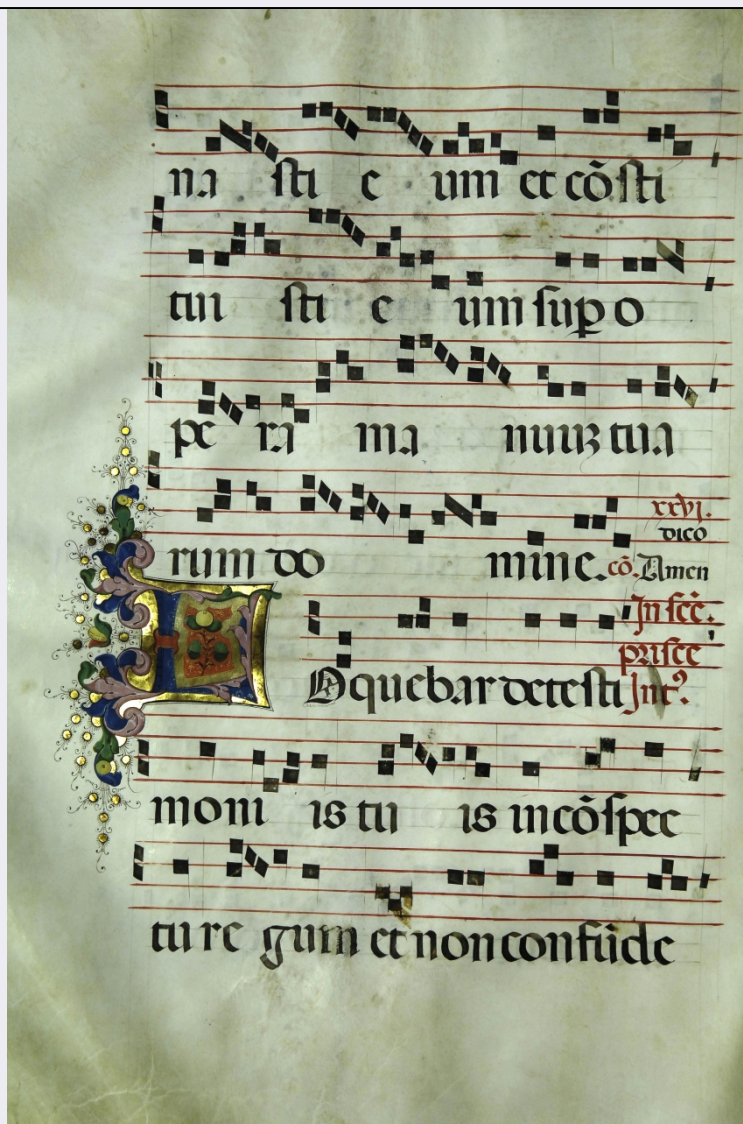 na sti e um et cōsti
tui sti e um sup o
pe ra ma nuuꝫ tua
rum do mine. cō. Amen
xxvj.
dico
In scē.
prisce
Intꝰ.
LOquebar de testi
moni is tu is in cōspec
tu re gum et non confūde